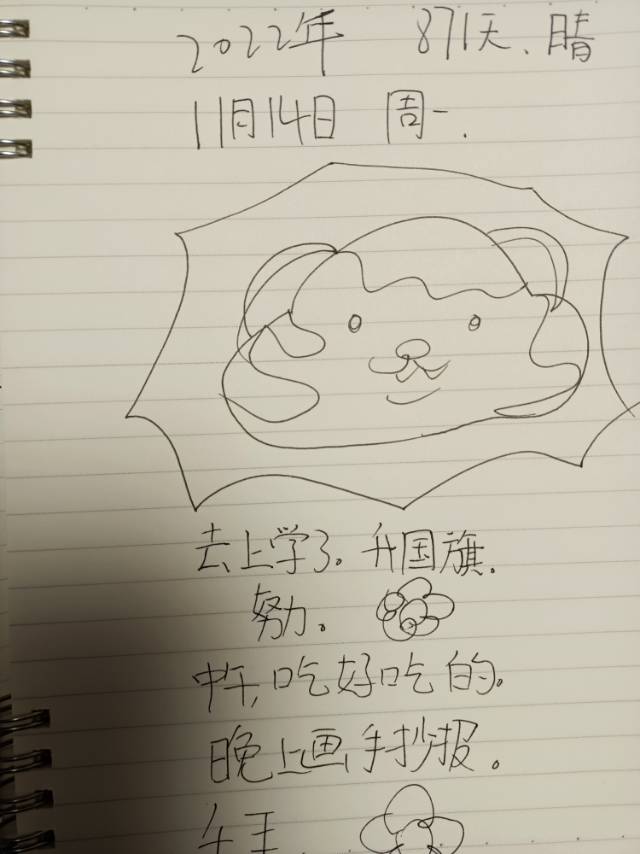 2022年 871天、晴
11月14日 周一.
去上学了。升国旗.
努力。
中午,吃好吃的。
晚上画手抄报。